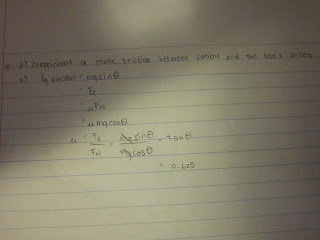 a) coefficient of static friction between patient and the bed's sheets
b) = mg sinθ
= Ff
= μFN
= μmg cosθ
μ = Ff/FN = Mg sinθ/Mg cosθ = Tanθ
= 0.625